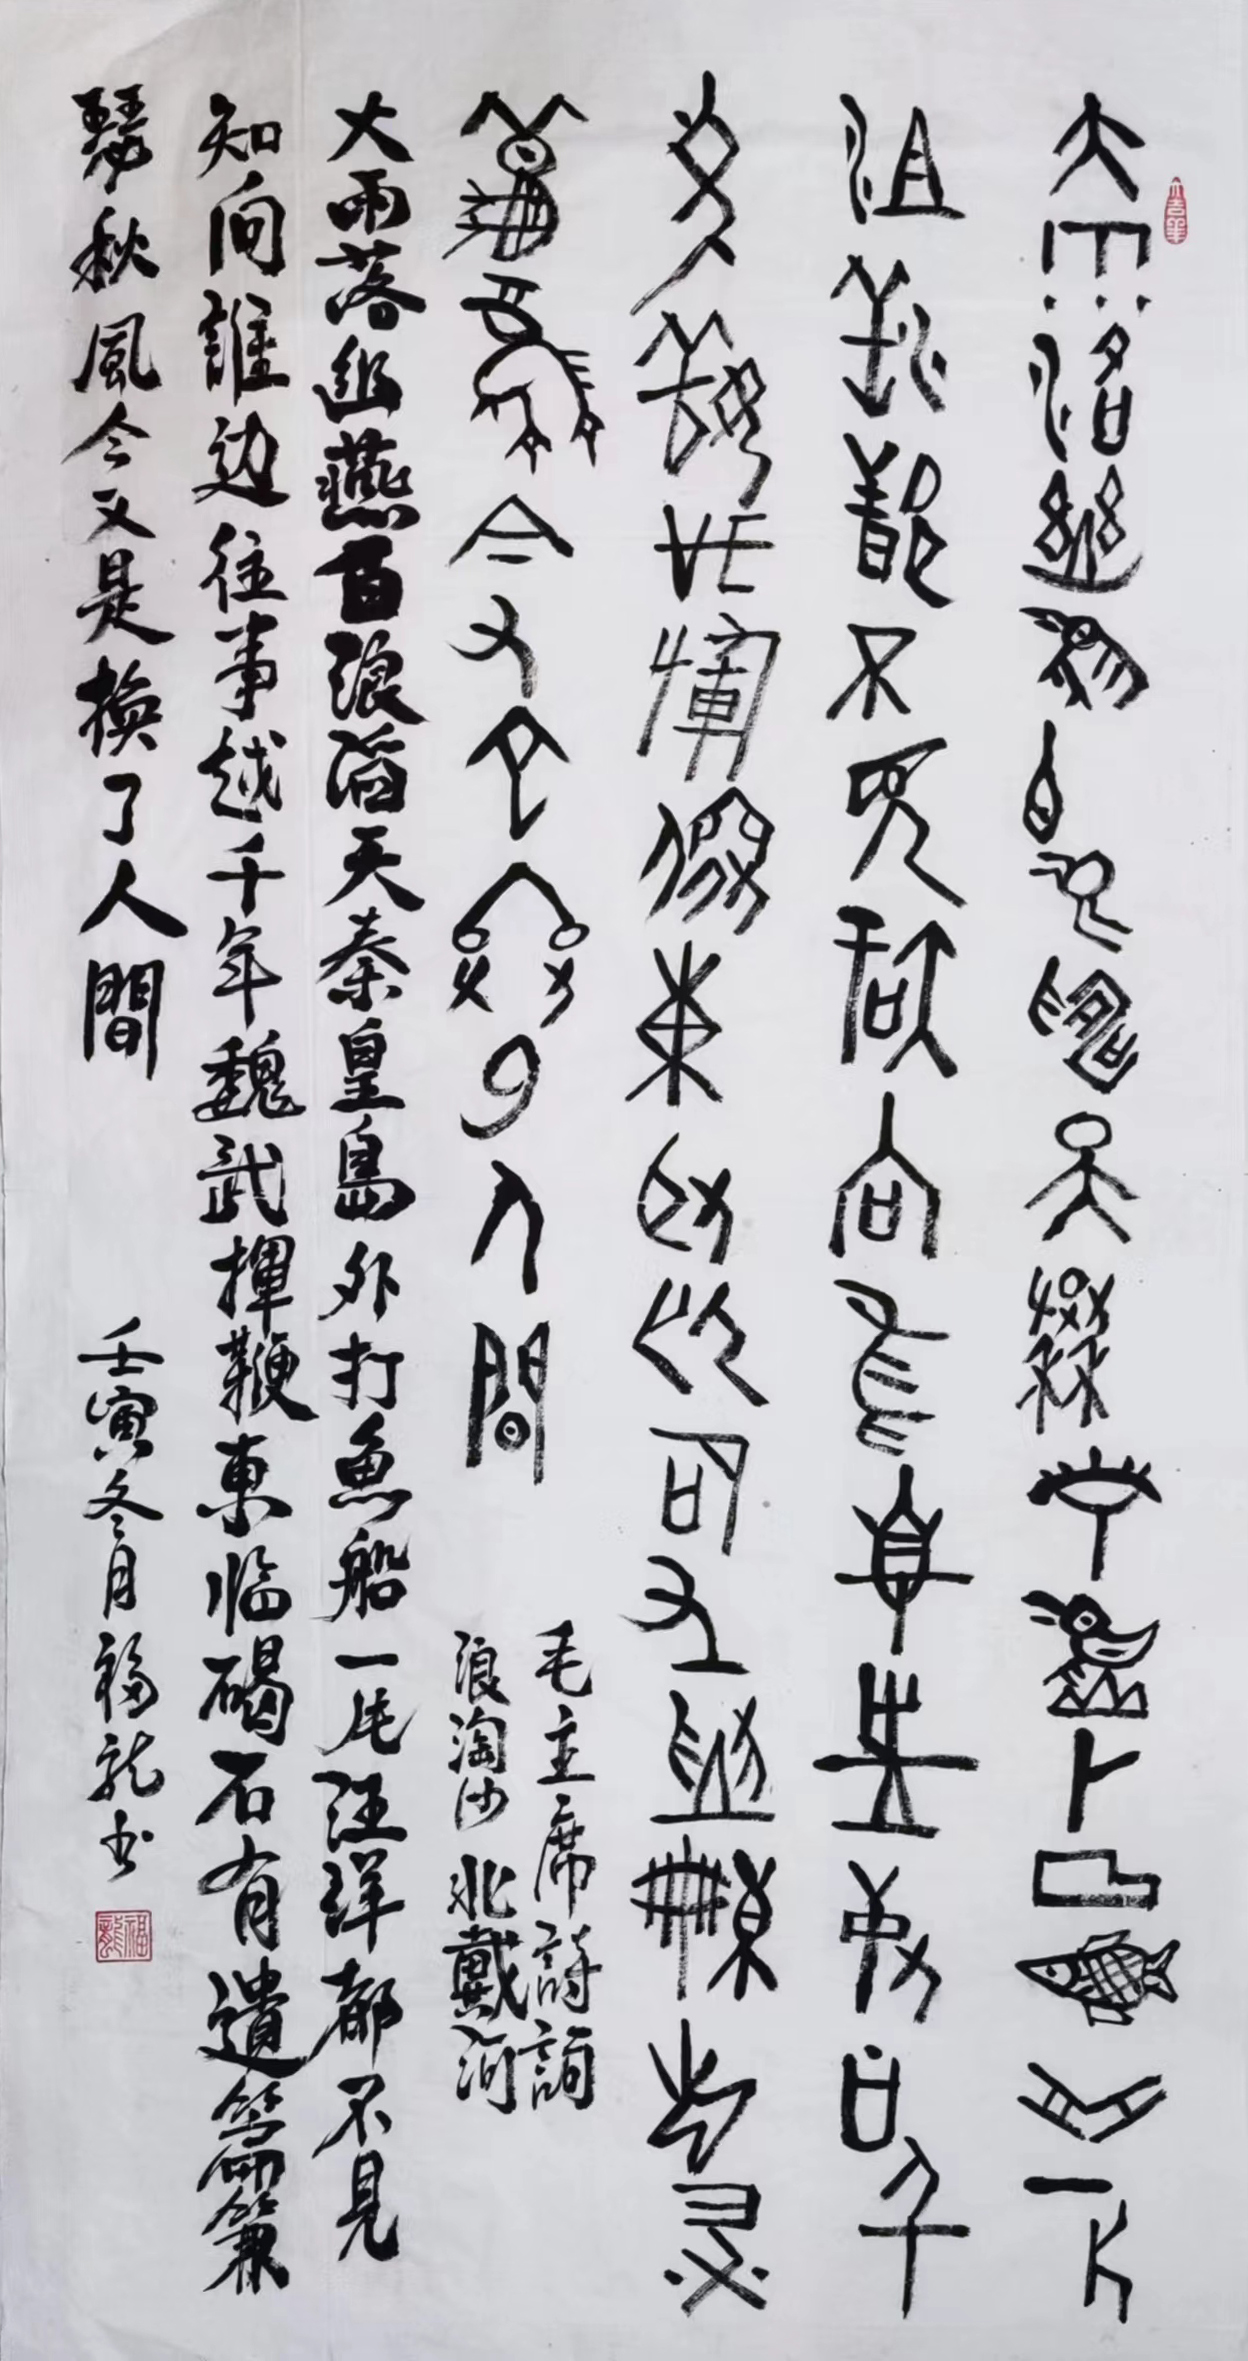 大雨落幽燕白浪滔天秦皇島外打魚船一片
汪洋都不見知向誰邊往事越千
年魏武揮鞭東臨碣石有遺篇蕭瑟
秋風今又是換了人間
毛主席詩詞
浪淘沙 北戴河
大雨落幽燕百浪滔天秦皇島外打魚船一片汪洋都不見
知向誰边往事越千年魏武揮鞭東临碣石有遺篇蕭
瑟秋風今又是換了人間
壬寅冬月福龍书
福龍